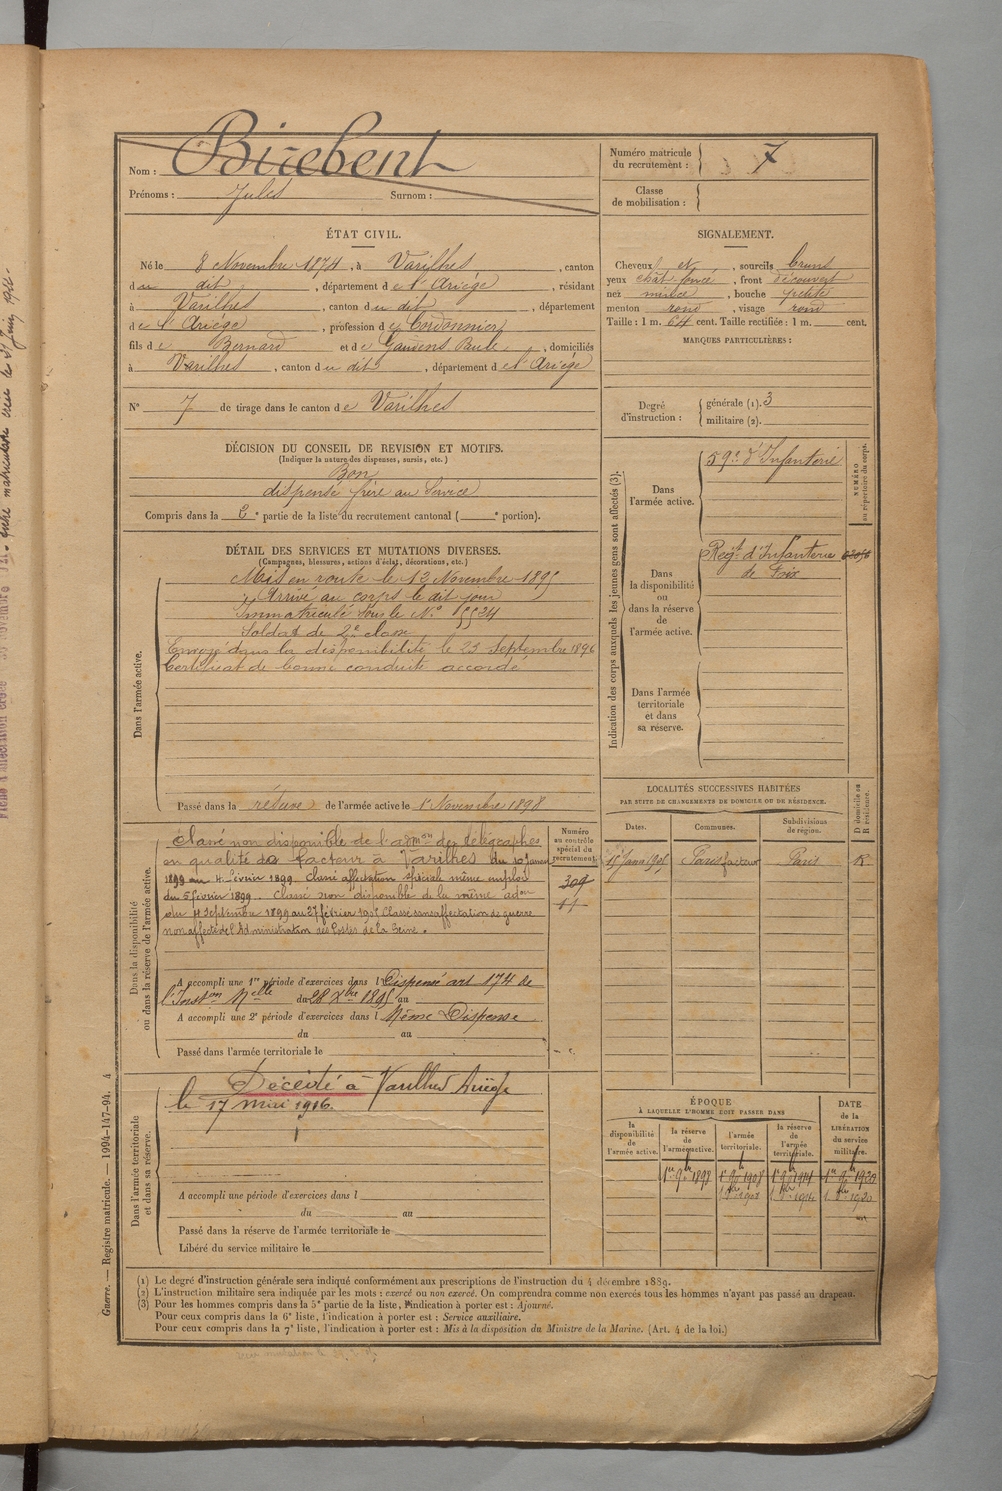 Nom : Birebent
Prénoms : Jules Surnom :
Numéro matricule du recrutement : 7
Classe de mobilisation :
ÉTAT CIVIL.
Né le 8 Novembre 1874, à Varilhes, canton
du dit, département de l'Ariège, résidant
à Varilhes, canton du dit, département
de l'Ariége, profession de Cordonnier
fils de Bernard et de Gaudens Paule, domiciliés
à Varilhes, canton du dit, département de l'Ariège
N° 7 de tirage dans le canton de Varilhes
SIGNALEMENT.
Cheveux et, sourcils bruns
yeux chât. foncé, front découvert
nez mince, bouche petite
menton rond, visage rond
Taille : 1 m. 64 cent. Taille rectifiée : 1 m. cent.
MARQUES PARTICULIÈRES :
Degré d'instruction : générale (1). 3
militaire (2).
DÉCISION DU CONSEIL DE REVISION ET MOTIFS.
(Indiquer la nature des dispenses, sursis, etc.)
Bon
dispensé frère au Service
Compris dans la 2e partie de la liste du recrutement cantonal ( e portion).
DÉTAIL DES SERVICES ET MUTATIONS DIVERSES.
(Campagnes, blessures, actions d'éclat, décorations, etc.)
Dans l'armée active.
Mis en route le 12 Novembre 1895
Arrivé au corps le dit jour
Immatriculé sous le N°
Soldat de 2e classe
Envoyé dans la disponibilité le 23 Septembre 1896
Certificat de bonne conduite accordé
Passé dans la réserve de l'armée active le 1er Novembre 1898
Indication des corps auxquels les jeunes gens sont affectés (3).
NUMÉRO au répertoire du corps.
Dans l'armée active.
59e d'Infanterie
Dans la disponibilité ou dans la réserve de l'armée active.
Regt d'Infanterie
de Foix
Dans l'armée territoriale et dans sa réserve.
Dans la disponibilité ou dans la réserve de l'armée active.
Numéro au contrôle spécial du recrutement.
Classé non disponible de l'admon des télégraphes
en qualité de facteur à Varilhes du 10 janvier
1899 au 4 février 1899. Classé affectation spéciale même emploi
du 5 février 1899. Classé non disponible de la même adon
du 4 Septembre 1899 au 27 février 1905 Classé sans affectation de guerre
non affecté de l'Administration des Postes de la Seine.
309
A accompli une 1re période d'exercices dans l Dispensé art. 174 de
l'Inston Melle du 28 Xbre 1895 au
A accompli une 2e période d'exercices dans l Même Dispense
du au
Passé dans l'armée territoriale le
LOCALITÉS SUCCESSIVES HABITÉES
PAR SUITE DE CHANGEMENTS DE DOMICILE OU DE RÉSIDENCE.
Dates. Communes. Subdivisions de région. D domicile ou R résidence.
15 Janv. 1905 Paris facteur Paris R
Dans l'armée territoriale et dans sa réserve.
Décédé à Varilhes Ariège
le 17 Mai 1916.
A accompli une période d'exercices dans l
du au
Passé dans la réserve de l'armée territoriale le
Libéré du service militaire le
ÉPOQUE
À LAQUELLE L'HOMME DOIT PASSER DANS
la disponibilité de l'armée active. la réserve de l'armée active. l'armée territoriale. la réserve de l'armée territoriale. DATE de la LIBÉRATION du service militaire.
1er 9bre 1898 1er 9bre 1908 1er 9bre 1914 1er 9bre 1920
(1) Le degré d'instruction générale sera indiqué conformément aux prescriptions de l'instruction du 4 décembre 1889.
(2) L'instruction militaire sera indiquée par les mots : exercé ou non exercé. On comprendra comme non exercés tous les hommes n'ayant pas passé au drapeau.
(3) Pour les hommes compris dans la 5e partie de la liste, l'indication à porter est : Ajourné.
Pour ceux compris dans la 6e liste, l'indication à porter est : Service auxiliaire.
Pour ceux compris dans la 7e liste, l'indication à porter est : Mis à la disposition du Ministre de la Marine. (Art. 4 de la loi.)
Guerre. — Registre matricule. — 1994-147-94. 4